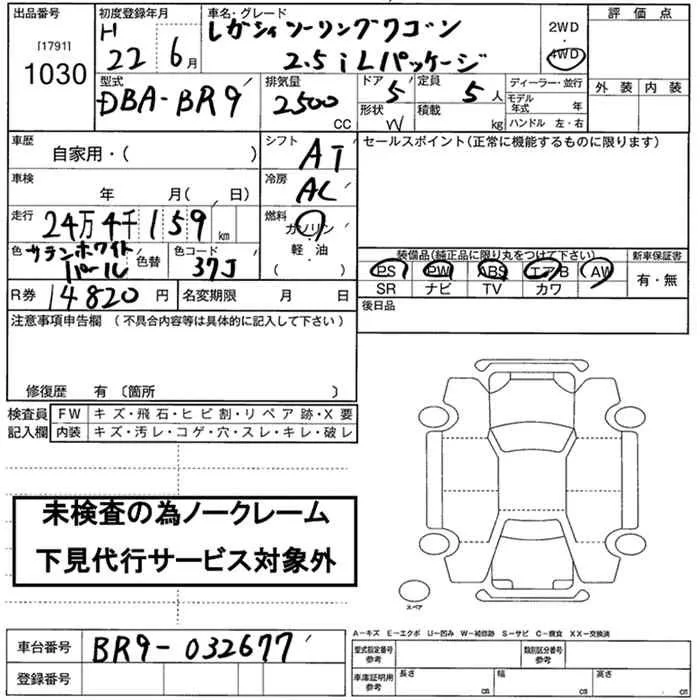 出品番号
[1791]
1030
初度登録年月
H
22 6月
車名・グレード
レガシィツーリングワゴン
2.5i Lパッケージ
2WD
・
4WD
評価点
外装 内装
型式
DBA-BR9
排気量
2500
CC
ドア 5
形状 W
定員
5人
積載
kg
ディーラー・並行
モデル年式 年
ハンドル 左・右
車歴
自家用・( )
シフト
AT
セールスポイント(正常に機能するものに限ります)
車検
年 月( 日)
冷房
AC
走行
24万4千159km
燃料
ガソリン
軽・油
( )
色 サテンホワイトパール
色替
色コード
37J
装備品(純正品に限り丸をつけて下さい)
PS PW ABS エアB AW
SR ナビ TV カワ
新車保証書
有・無
R券 14820円
名変期限 月 日
後日品
注意事項申告欄(不具合内容等は具体的に記入して下さい)
修復歴 有〔箇所 〕
検査員記入欄
FW キズ・飛石・ヒビ割・リペア跡・X要
内装 キズ・汚レ・コゲ・穴・スレ・キレ・破レ
未検査の為ノークレーム
下見代行サービス対象外
スペア
A-キズ E-エクボ U-凹み W-補修跡 S-サビ C-腐食 XX-交換済
車台番号 BR9-032677
登録番号
型式指定番号参考
類別区分番号参考
車庫証明用参考
長さ cm
幅 cm
高さ cm